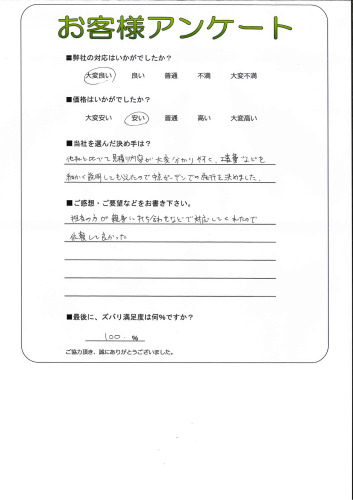 お客様アンケート
■弊社の対応はいかがでしたか？
大変良い 良い 普通 不満 大変不満
■価格はいかがでしたか？
大変安い 安い 普通 高い 大変高い
■当社を選んだ決め手は？
他社と比べて見積り内容が大変分かりやすく、工事費などを
細かく説明してもらえたので ガーデンでの施行を決めました。
■ご感想・ご要望などをお書き下さい。
担当の方が親身に打ち合わせなどで対応してくれたので
依頼して良かった
■最後に、ズバリ満足度は何%ですか？
100. %
ご協力頂き、誠にありがとうございました。